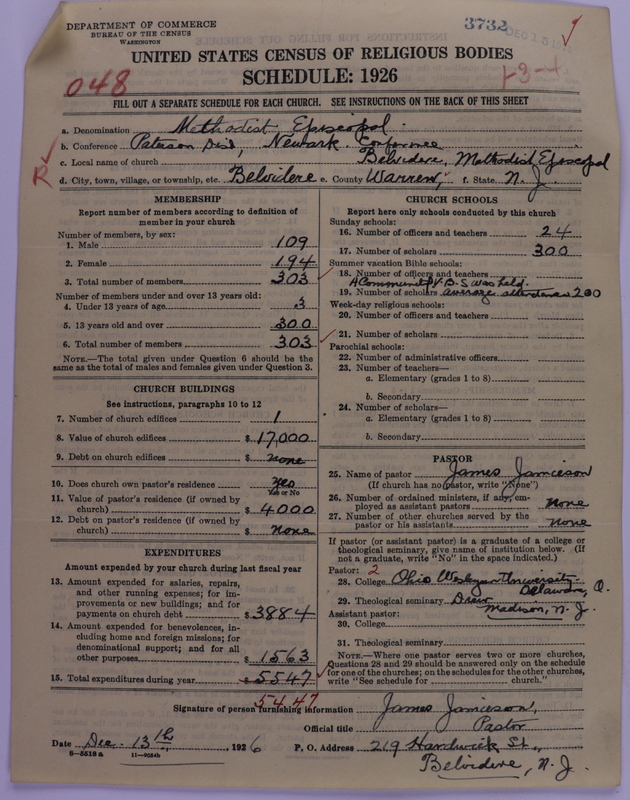 DEPARTMENT OF COMMERCE
BUREAU OF THE CENSUS
WASHINGTON
3732
DEC 15 19
UNITED STATES CENSUS OF RELIGIOUS BODIES
SCHEDULE: 1926
048
1-3-4
FILL OUT A SEPARATE SCHEDULE FOR EACH CHURCH. SEE INSTRUCTIONS ON THE BACK OF THIS SHEET
a. Denomination Methodist Episcopal
b. Conference Paterson Dist, Newark Conference
c. Local name of church Belvidere, Methodist Episcopal
R d. City, town, village, or township, etc. Belvidere e. County Warren, f. State N. J.
MEMBERSHIP
Report number of members according to definition of
member in your church
Number of members, by sex:
1. Male 109
2. Female 194
3. Total number of members 303
Number of members under and over 13 years old:
4. Under 13 years of age 3
5. 13 years old and over 300
6. Total number of members 303
NOTE.—The total given under Question 6 should be the
same as the total of males and females given under Question 3.
CHURCH BUILDINGS
See instructions, paragraphs 10 to 12
7. Number of church edifices 1
8. Value of church edifices $ 17,000
9. Debt on church edifices $ none
10. Does church own pastor's residence? Yes
Yes or No
11. Value of pastor's residence (if owned by
church) $ 4000
12. Debt on pastor's residence (if owned by
church) $ none
EXPENDITURES
Amount expended by your church during last fiscal year
13. Amount expended for salaries, repairs,
and other running expenses; for im-
provements or new buildings; and for
payments on church debt $ 3884
14. Amount expended for benevolences, in-
cluding home and foreign missions; for
denominational support; and for all
other purposes $ 1563
15. Total expenditures during year $ 5547
5447
CHURCH SCHOOLS
Report here only schools conducted by this church
Sunday schools:
16. Number of officers and teachers 24
17. Number of scholars 300
Summer vacation Bible schools:
18. Number of officers and teachers
A Community V. B. S was held.
19. Number of scholars average attendance 200
Week-day religious schools:
20. Number of officers and teachers
21. Number of scholars
Parochial schools:
22. Number of administrative officers
23. Number of teachers—
a. Elementary (grades 1 to 8)
b. Secondary
24. Number of scholars—
a. Elementary (grades 1 to 8)
b. Secondary
PASTOR
25. Name of pastor James Jamieson
(If church has no pastor, write "None")
26. Number of ordained ministers, if any, em-
ployed as assistant pastors None
27. Number of other churches served by the
pastor or his assistants None
If pastor (or assistant pastor) is a graduate of a college or
theological seminary, give name of institution below. (If
not a graduate, write "No" in the space indicated.)
Pastor: 2
28. College Ohio Wesleyan University
Delaware, O.
29. Theological seminary Drew
Madison, N. J.
Assistant pastor:
30. College
31. Theological seminary
NOTE.—Where one pastor serves two or more churches,
Questions 28 and 29 should be answered only on the schedule
for one of the churches; on the schedules for the other churches,
write "See schedule for church."
Signature of person furnishing information James Jamieson,
Official title Pastor
Date Dec. 13th, 1926 P. O. Address 219 Hardwick St.,
8-5518 a 11-9054b
Belvidere, N. J.